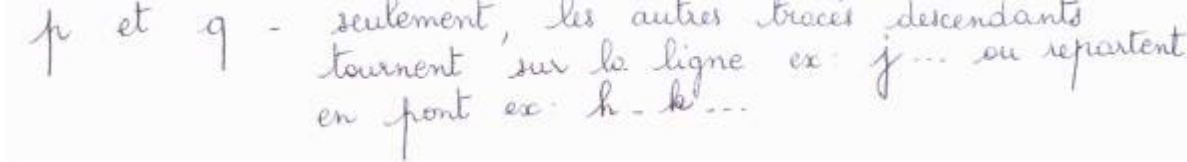 p et q - seulement, les autres tracés descendants
tournent sur la ligne ex: j... ou repartent
en pont ex: h - k...